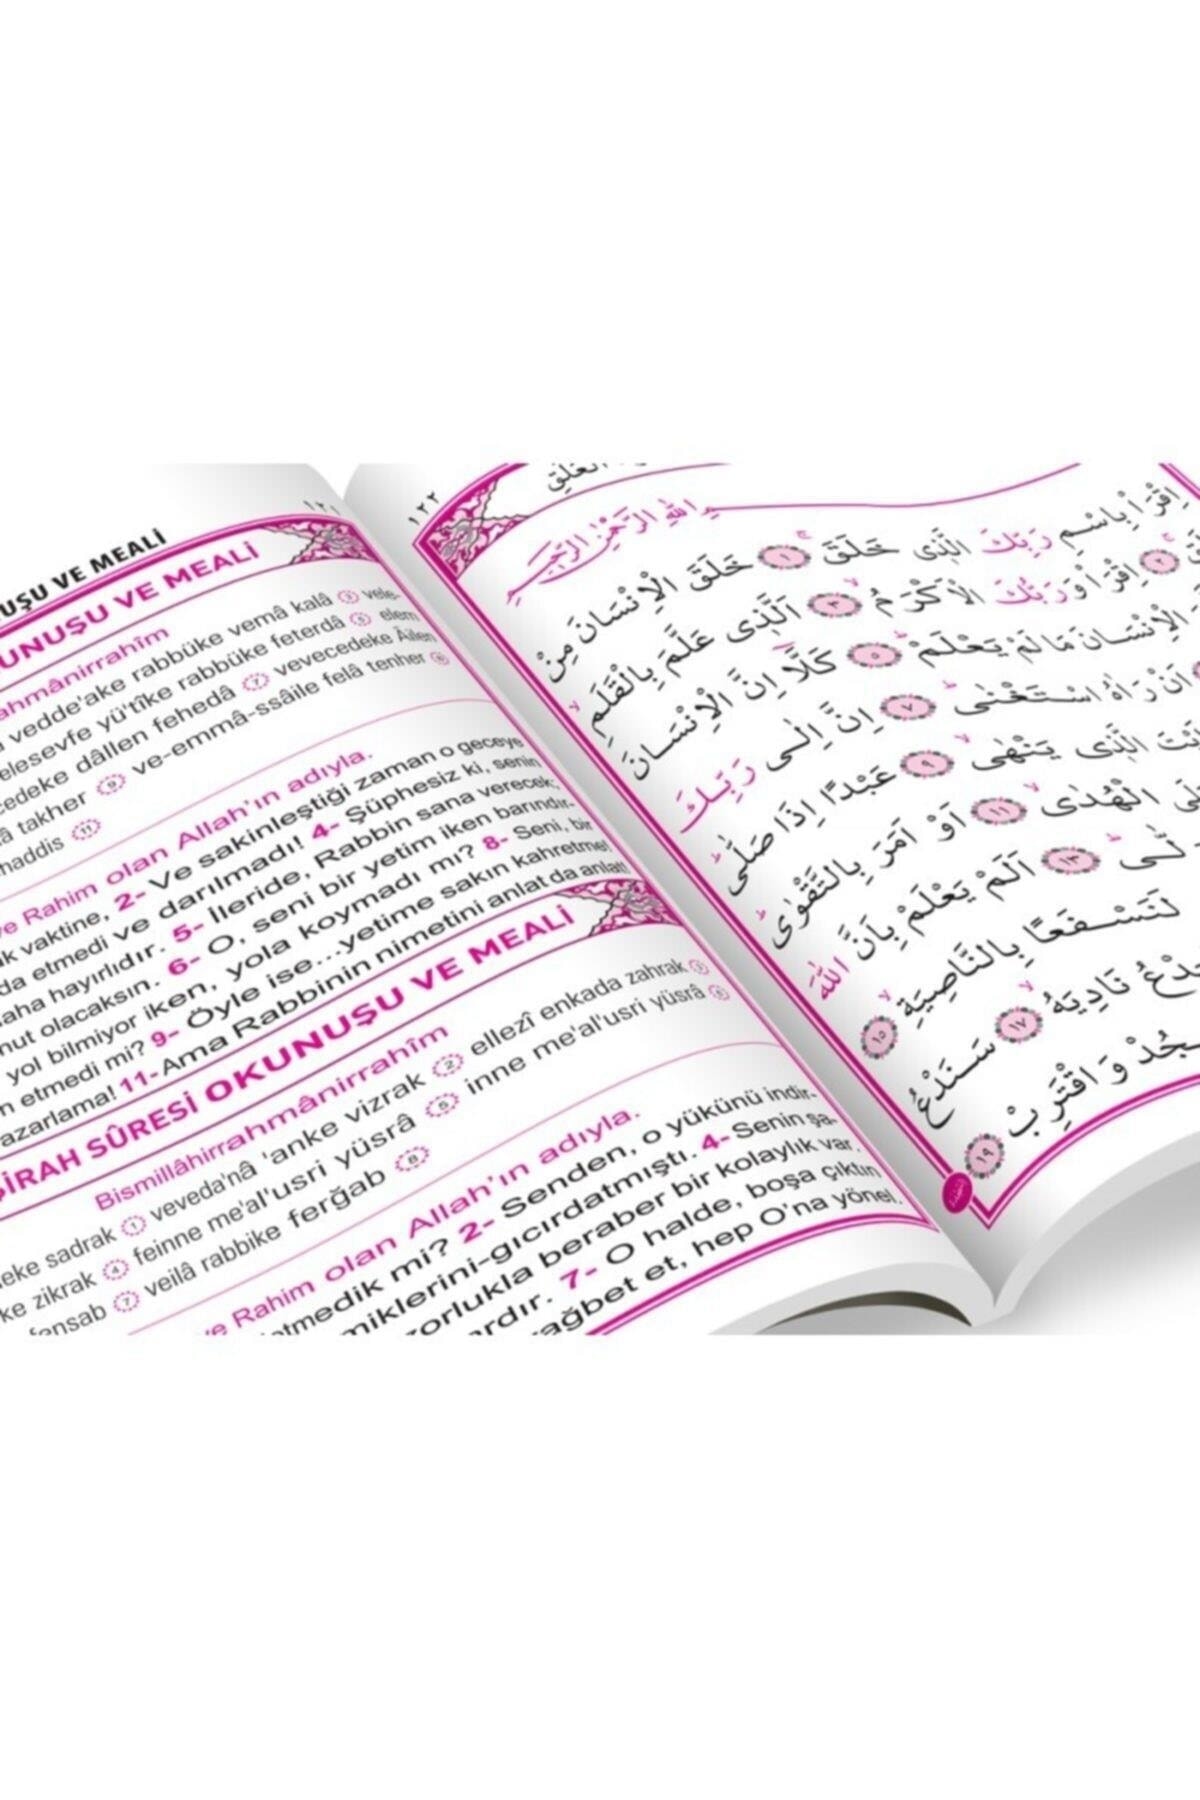 ١٢١
NUŞU VE MEALİ
UNUŞU VE MEALİ
ahmânirrahîm
vedde'ake rabbüke vemâ kalâ 3 vele-
elesevfe yü'tîke rabbüke feterdâ 5 elem
cedeke dâllen fehedâ 7 vevecedeke Âilen
â takher 9 ve-emmâ-ssâile felâ tenher 10
haddis 11
ve Rahim olan Allah'ın adıyla.
k vaktine, 2- Ve sakinleştiği zaman o geceye
da etmedi ve darılmadı! 4- Şüphesiz ki, senin
aha hayırlıdır. 5- İleride, Rabbin sana verecek;
nut olacaksın. 6- O, seni bir yetim iken barındır-
yol bilmiyor iken, yola koymadı mı? 8- Seni, bir
n etmedi mi? 9- Öyle ise...yetime sakın kahretme!
azarlama! 11- Ama Rabbinin nimetini anlat da anlat!
ŞİRAH SÛRESİ OKUNUŞU VE MEALİ
Bismillâhirrahmânirrahîm
eke sadrak 1 veveda'nâ 'anke vizrak 2 ellezî enkada zahrak 3
ke zikrak 4 feinne me'al'usri yüsrâ 5 inne me'al'usri yüsrâ 6
fensab 7 veilâ rabbike ferğab 8
ve Rahim olan Allah'ın adıyla.
etmedik mi? 2- Senden, o yükünü indir-
miklerini-gıcırdatmıştı. 4- Senin şa-
zorlukla beraber bir kolaylık var.
ardır. 7- O halde, boşa çıktın
rağbet et, hep O'na yönel.
١٢٢
الْعَلَقِ
اللّٰهِ الرَّحْمٰنِ الرَّحِيمِ
اِقْرَاْ بِاسْمِ رَبِّكَ الَّذِى خَلَقَ ١ خَلَقَ الْاِنْسَانَ مِنْ
٢ اِقْرَاْ وَرَبُّكَ الْاَكْرَمُ ٣ اَلَّذِى عَلَّمَ بِالْقَلَمِ
الْاِنْسَانَ مَالَمْ يَعْلَمْ ٥ كَلَّا اِنَّ الْاِنْسَانَ
اَنْ رَاٰهُ اسْتَغْنٰى ٧ اِنَّ اِلٰى رَبِّكَ
الَّذِى يَنْهٰى ٩ عَبْدًا اِذَا صَلّٰى
الْهُدٰى ١١ اَوْ اَمَرَ بِالتَّقْوٰى
١٣ اَلَمْ يَعْلَمْ بِاَنَّ اللّٰهَ
لَنَسْفَعًا بِالنَّاصِيَةِ ١٥
نَادِيَهُ ١٧ سَنَدْعُ
وَاقْتَرِبْ ١٩